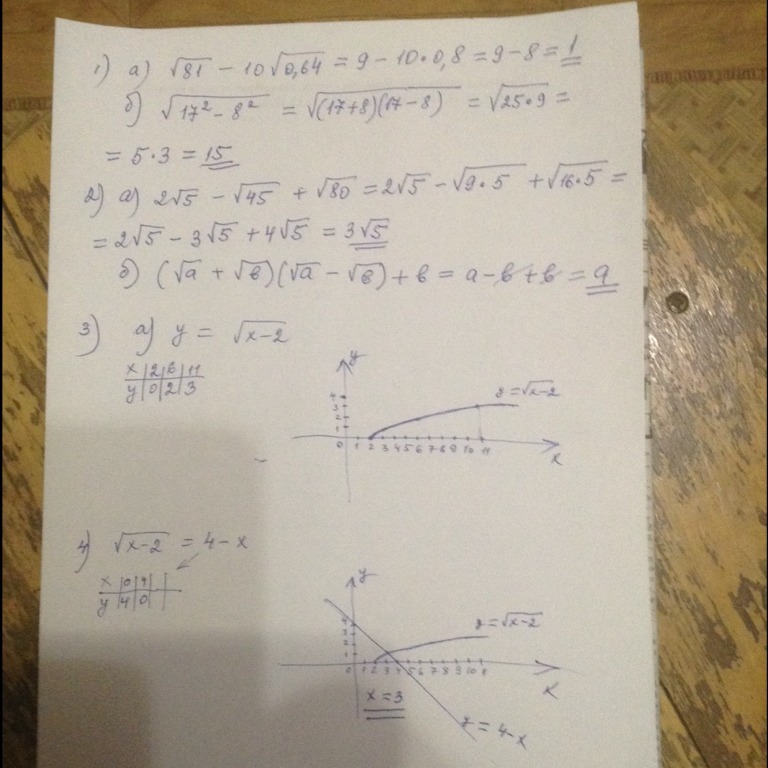 1) а) √81 - 10√0,64 = 9 - 10•0,8 = 9 - 8 = 1
б) √17² - 8² = √(17+8)(17-8) = √25•9 =
= 5•3 = 15
2) а) 2√5 - √45 + √80 = 2√5 - √9•5 + √16•5 =
= 2√5 - 3√5 + 4√5 = 3√5
б) (√a + √b)(√a - √b) + b = a - b + b = a
3) а) y = √x-2
x | 2 | 6 | 11
y | 0 | 2 | 3
y
4
3
2
1
0 1 2 3 4 5 6 7 8 9 10 11
x
y = √x-2
4) √x-2 = 4 - x
x | 0 | 4 |
y | 4 | 0 |
y
4
3
2
1
0 1 2 3 4 5 6 7 8 9 10 11
x
y = √x-2
x = 3
y = 4 - x